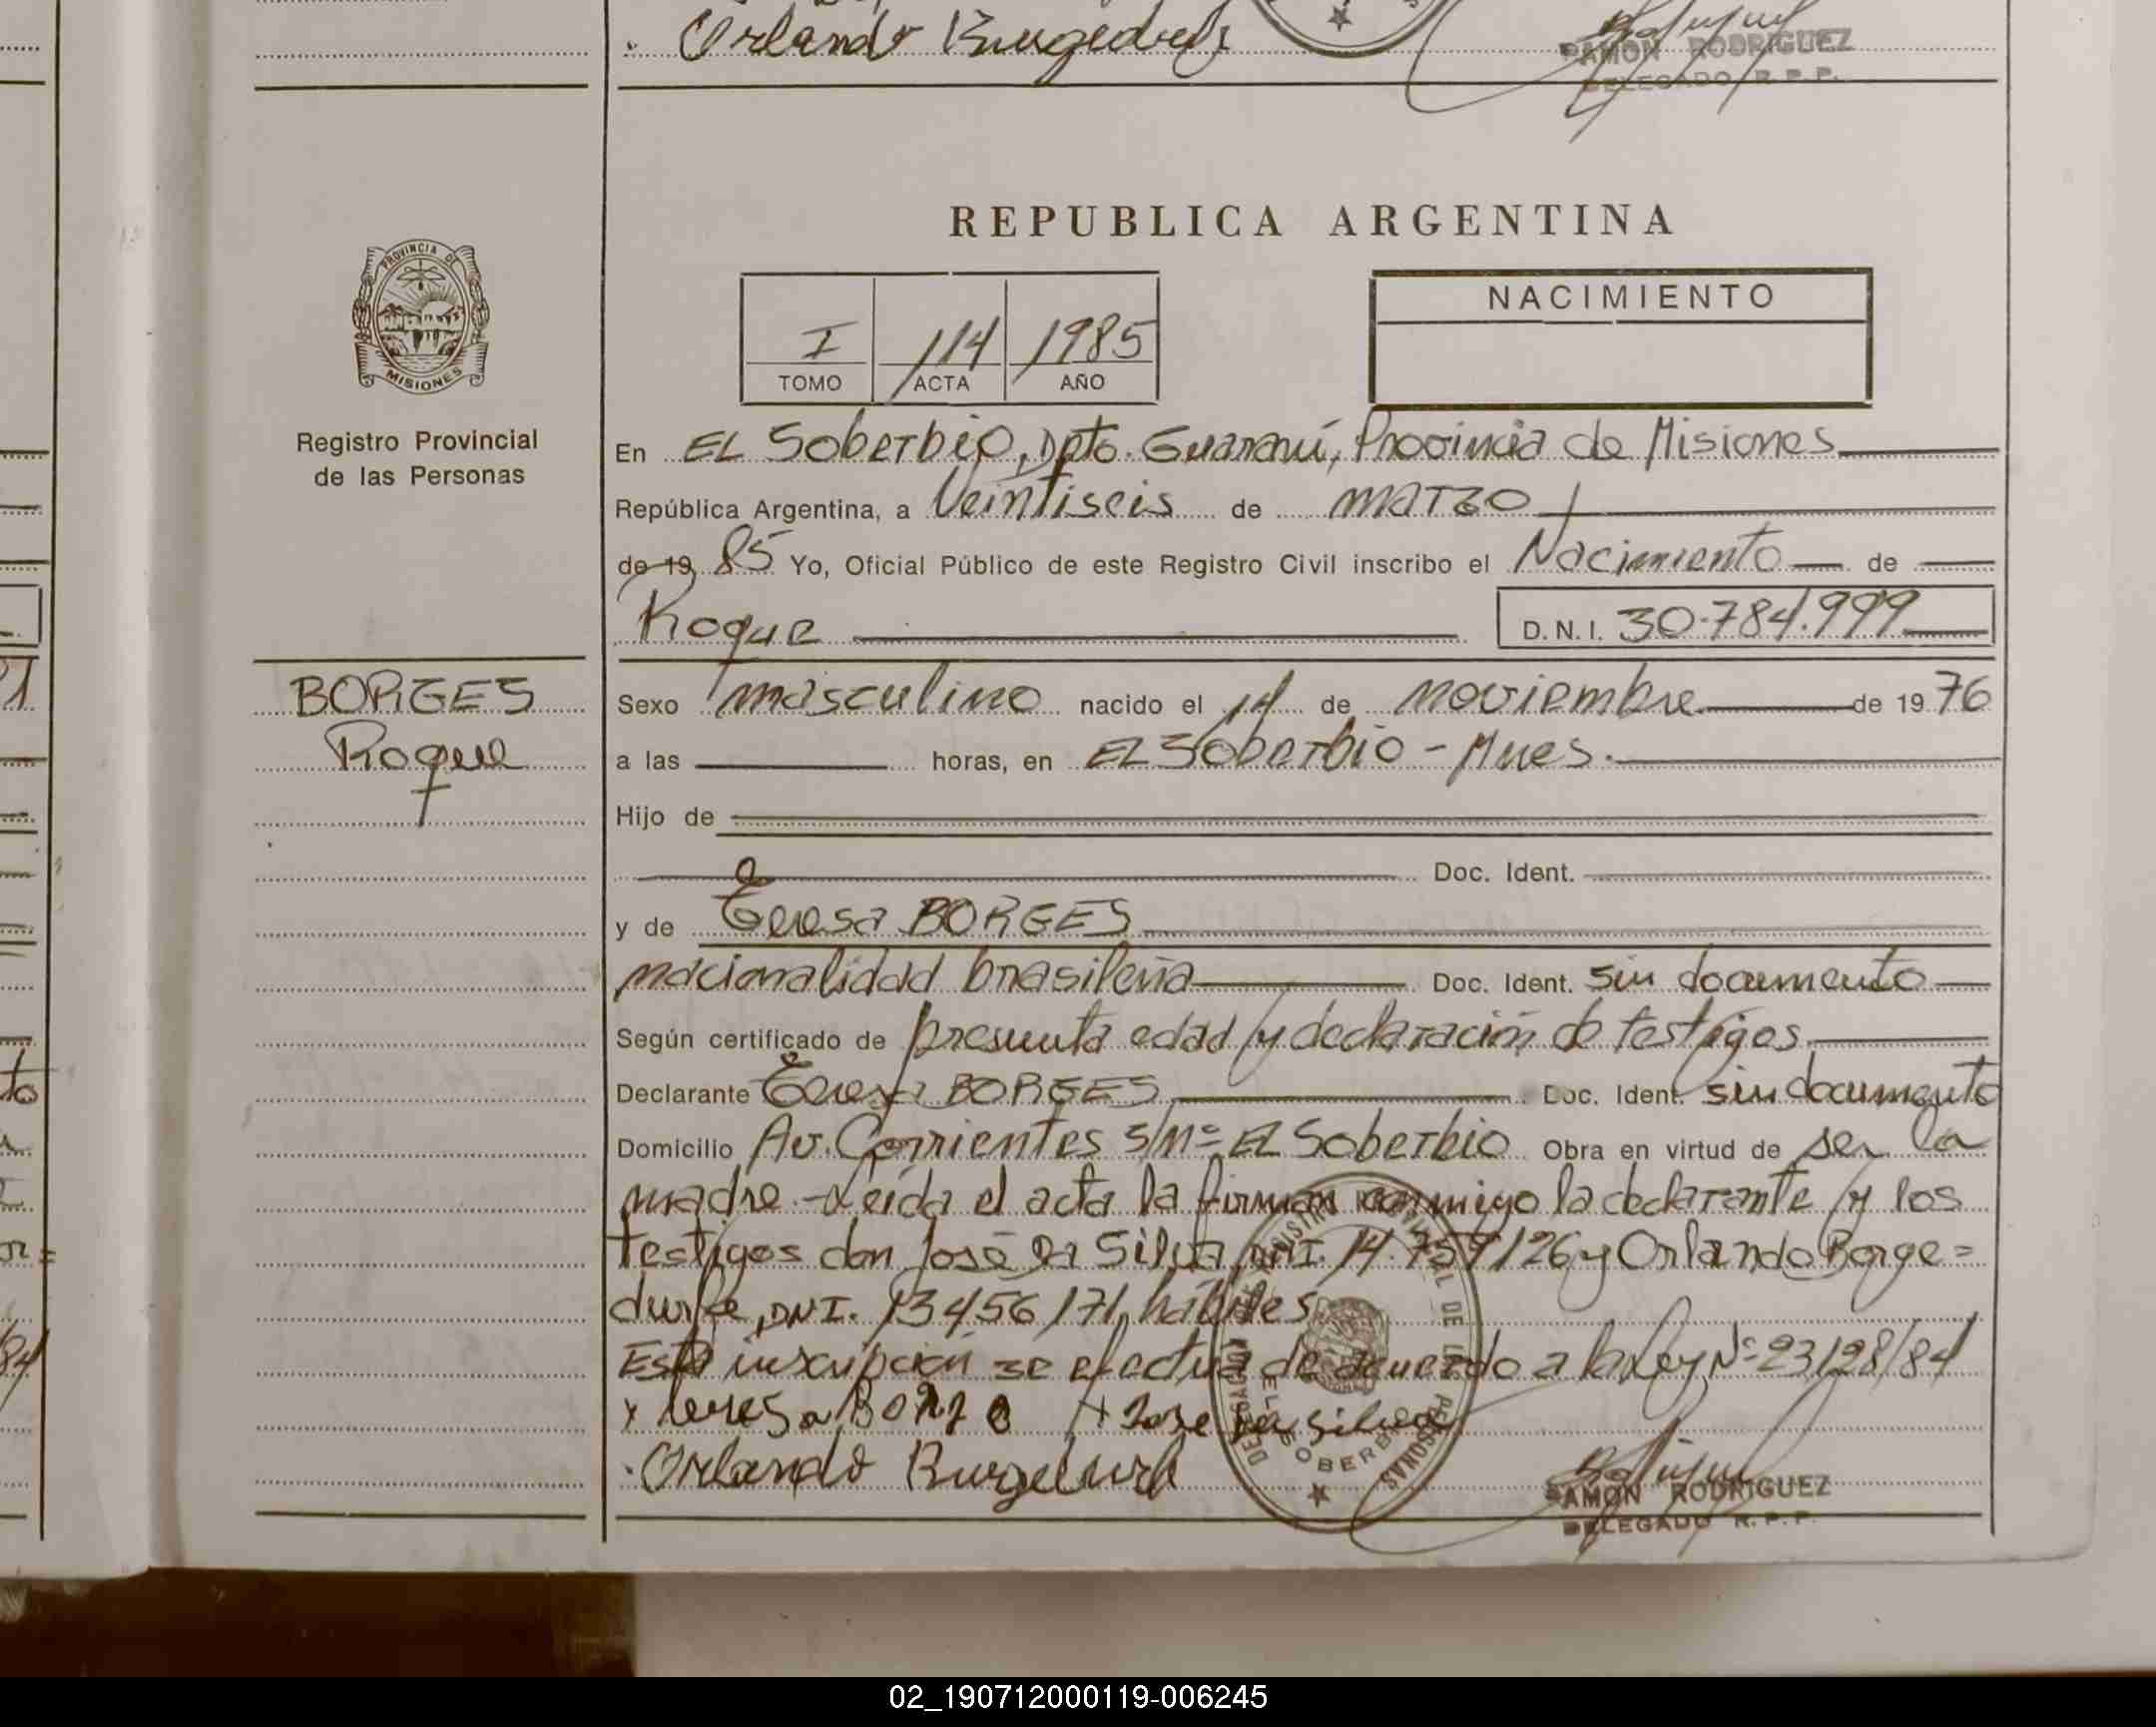 Orlando
RAMON RODRIGUEZ
DELEGADO R. P. P.
REPUBLICA ARGENTINA
PROVINCIA DE
MISIONES
Registro Provincial
de las Personas
I 114 1985
TOMO ACTA AÑO
NACIMIENTO
En EL Soberbio, Dpto. Guaraní, Provincia de Misiones
República Argentina, a Veintiseis de marzo
de 19 85 Yo, Oficial Público de este Registro Civil inscribo el Nacimiento de
Roque D.N.I. 30.784.999
BORGES
Roque
Sexo masculino nacido el 14 de noviembre de 19 76
a las horas, en EL Soberbio - Mnes.
Hijo de
Doc. Ident.
y de Teresa BORGES
nacionalidad brasileña Doc. Ident. sin documento
Según certificado de presunta edad y declaración de testigos
Declarante Teresa BORGES Doc. Ident. sin documento
Domicilio Av. Corrientes s/nº EL Soberbio Obra en virtud de ser la
madre.- Leída el acta la firman conmigo la declarante y los
testigos don José Da Silva, DNI. 14.759126 y Orlando Borge=
DNI. 13456171, hábiles
Esta inscripción se efectua de acuerdo a la Ley Nº 23128/84
x teresa x Jose da silva
Orlando
EL SOBERBIO
RAMON RODRIGUEZ
DELEGADO R. P. P.
02_190712000119-006245